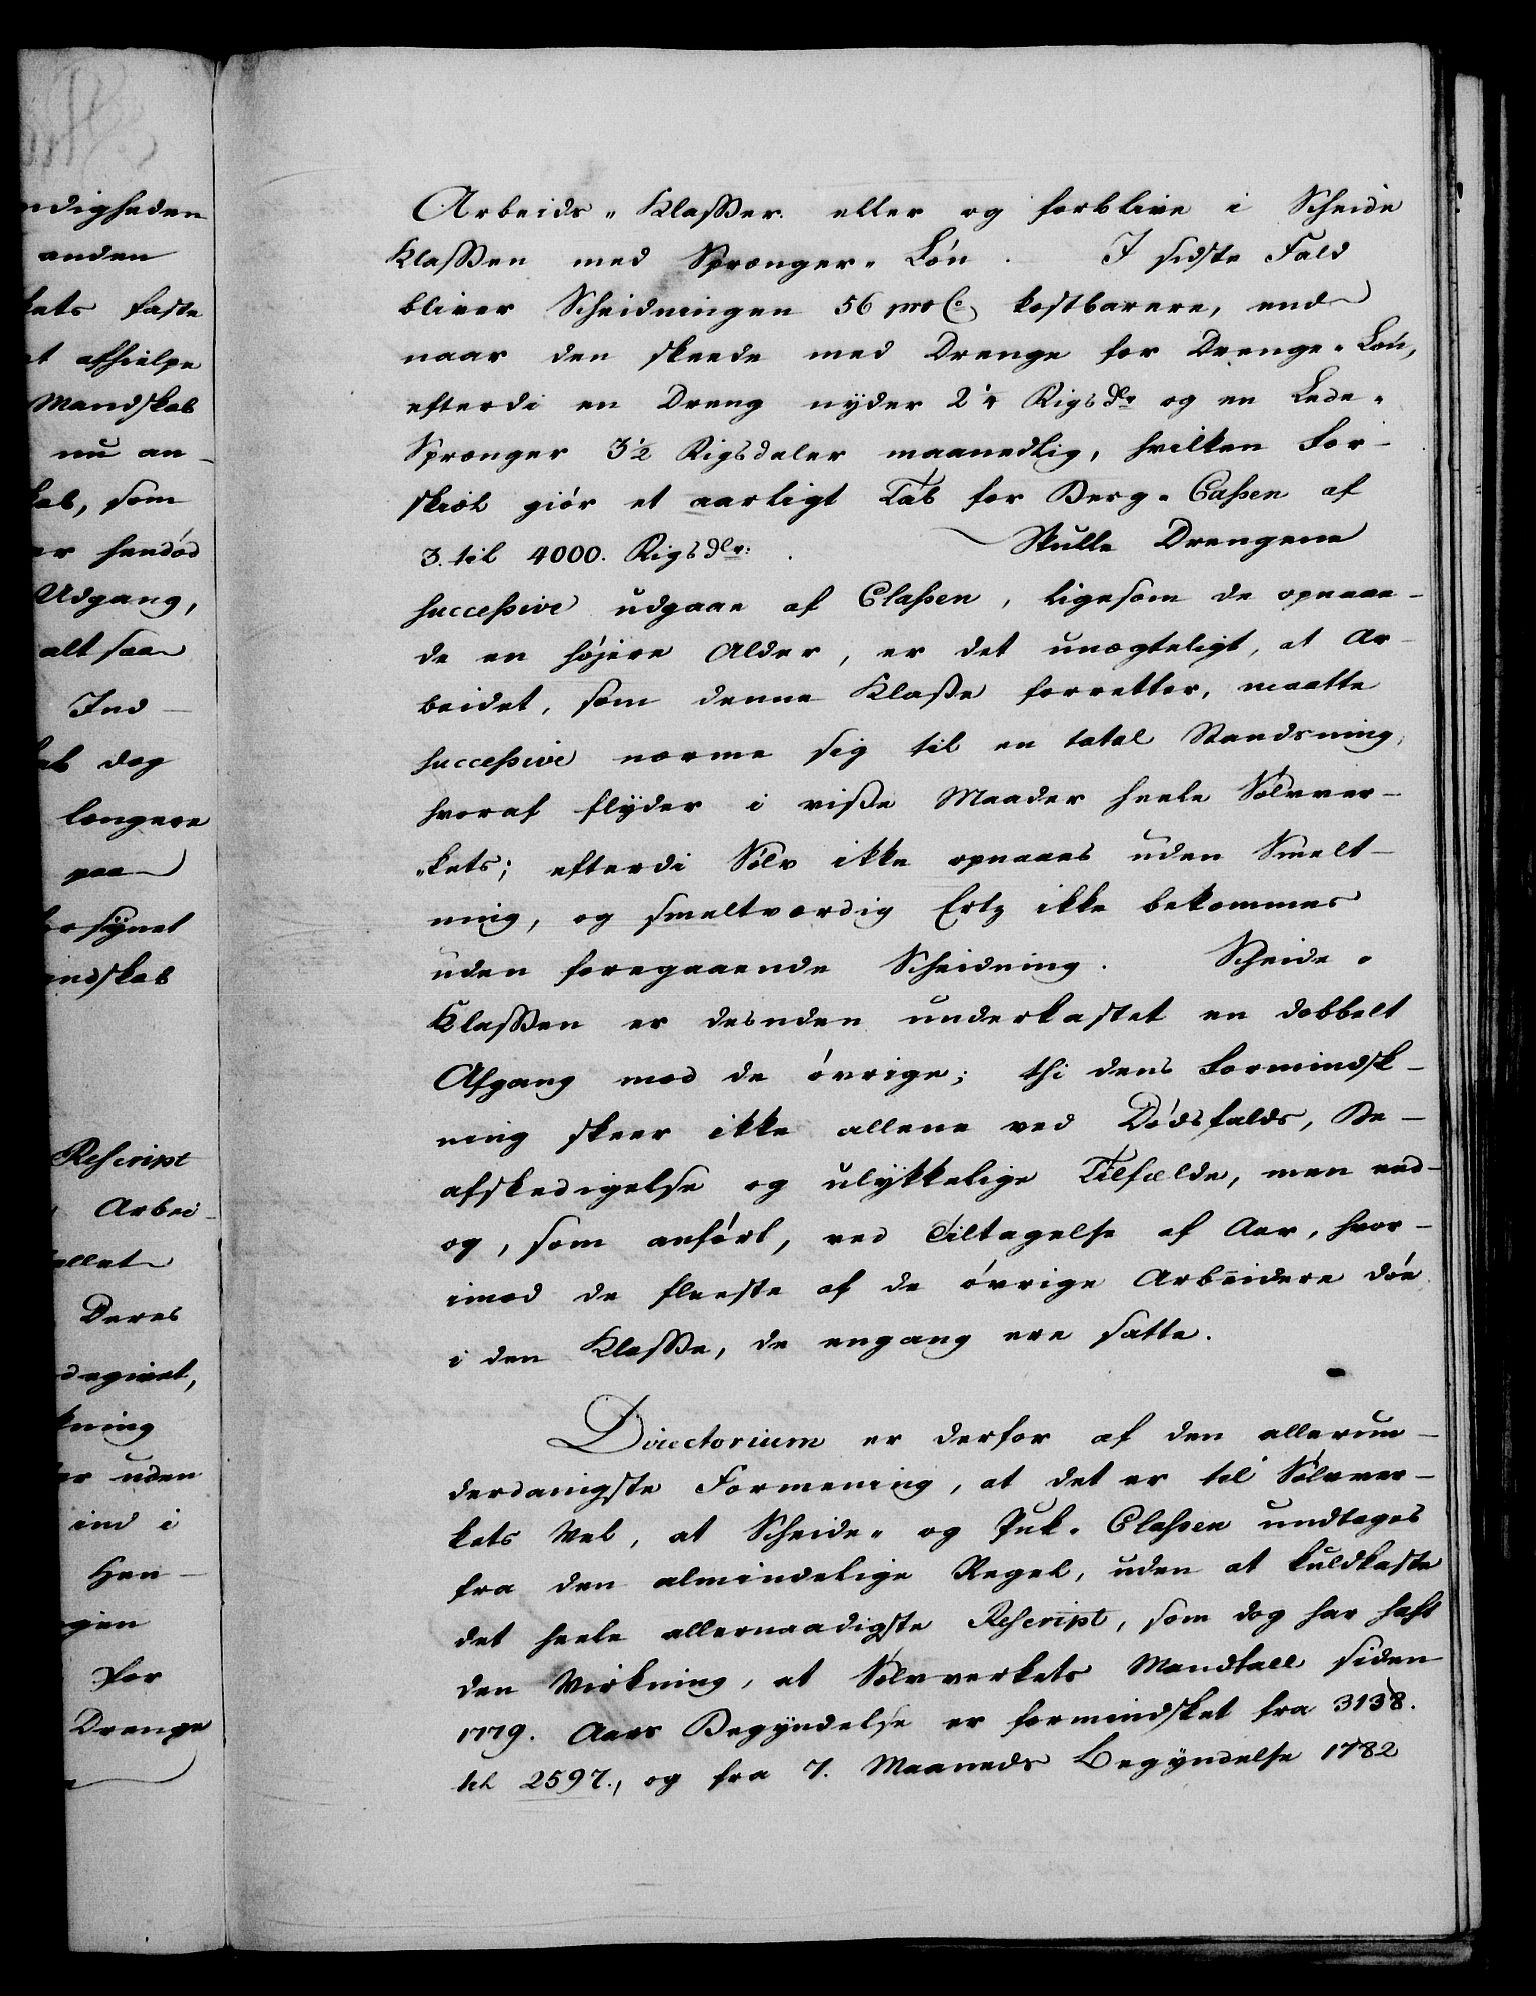 ndigheden
anden
kets faste
at afhielpe
Mandskab
nu an-
kab, som
er hendød
Udgang,
alt saa
Ind-
ab dog
længere
paa
ersynet
andskab
Rescript
Arbei-
allet
Deres
degivet,
kning
er uden
ind i
Hen-
gen
for
Drenge
Arbeids-Klasser eller og forblive i Scheide
Klassen med Sprænger-Løn. I sidste Fald
bliver Scheidningen 56 pro Cto kostbarere, end
naar den skeede med Drenge for Drenge-Løn,
efterdi en Dreng nyder 2¼ Rigsdlr og en Lede-
Sprænger 3½ Rigsdaler maanedlig, hvilken For-
skiæl giør et aarligt Tab for Berg-Cassen af
3. til 4000. Rigsdlr: Skulle Drengene
successive udgaae af Classen, ligesom de opnaae-
de en højere Alder, er det unægteligt, at Ar-
beidet, som denne Klasse forretter, maatte
successive nærme sig til en total Standsning,
hvoraf flyder i visse Maader heele Sølvver-
kets; efterdi Sølv ikke opnaaes uden Smelt-
ning, og smeltværdig Ertz ikke bekommes
uden foregaaende Scheidning. Scheide-
Klassen er desuden underkastet en dobbelt
Afgang mod de øvrige; thi dens Formindsk-
ning skeer ikke allene ved Dødsfalds, Be-
afskedigelse og ulykkelige Tilfælde, men end-
og, som anført, ved Tiltagelse af Aar, hvor-
imod de fleeste af de øvrige Arbeidere døe
i den Klasse, de engang ere satte.
Directorium er derfor af den allerun-
derdanigste Formening, at det er til Sølvver-
kets Vel, at Scheide- og Puk-Classen undtages
fra den almindelige Regel, uden at kuldkaste
det heele allernaadigste Rescript, som dog har haft
den Virkning, at Sølvverkets Mandtall siden
1779. Aars Begyndelse er formindsket fra 3138.
til 2597., og fra 7. Maaneds Begyndelse 1782